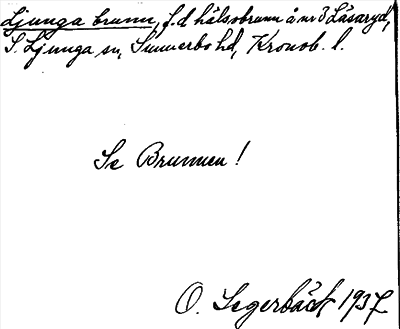 Ljunga brunn, f.d hälsobrunn å nr 3 Läsaryd,
S. Ljunga sn, Sunnerbo hd, Kronob. l.
Se Brunnen!
O. Segerbäck 1937